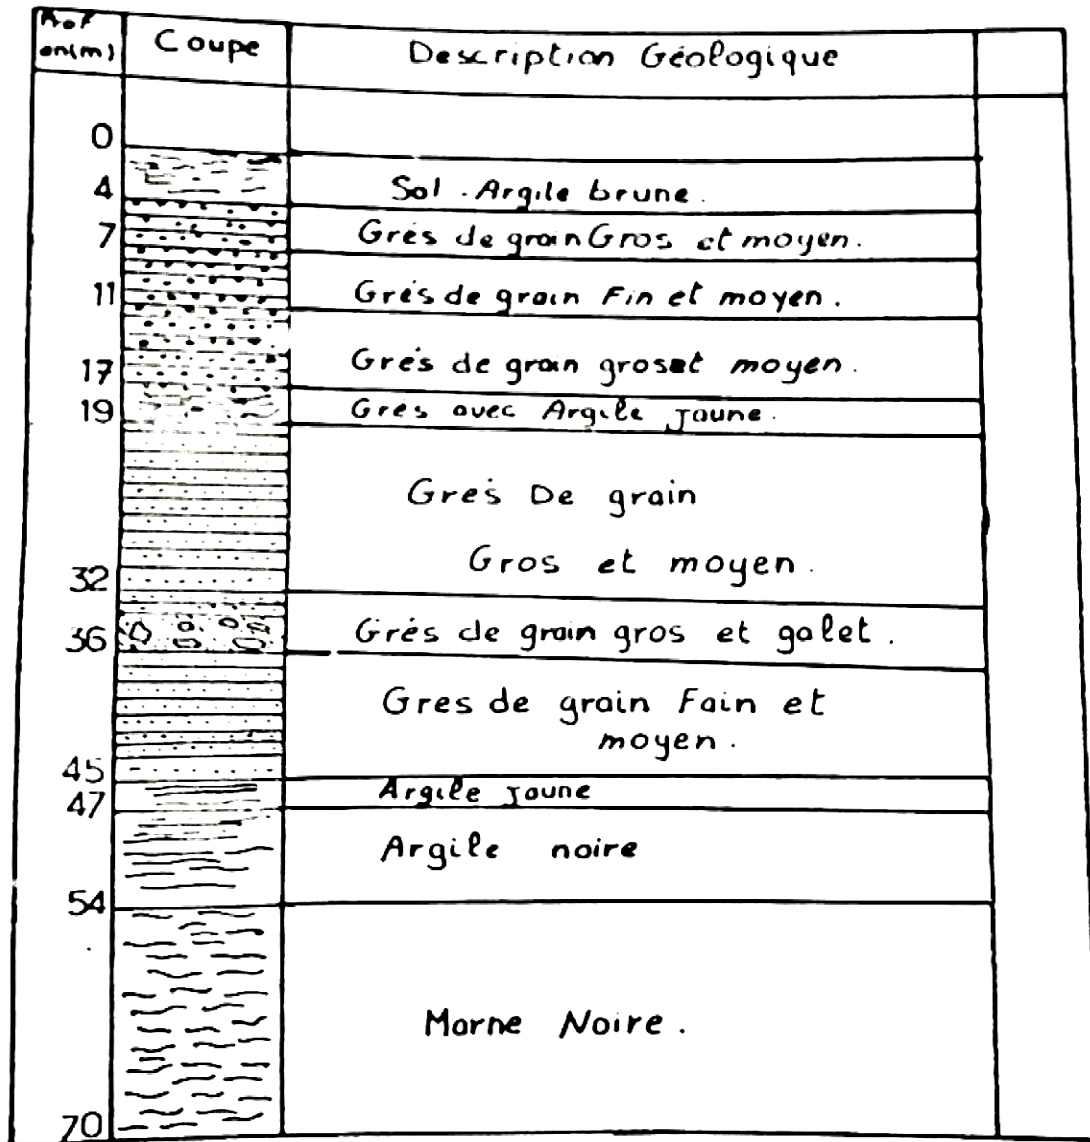 Prof
en(m)
Coupe
Description Géologique
0
4
Sol . Argile brune .
7
Grés de grain Gros et moyen .
11
Grés de grain Fin et moyen .
17
Grés de grain gros et moyen .
19
Grés avec Argile Jaune .
Grés De grain
Gros et moyen .
32
36
Grés de grain gros et galet .
Gres de grain Fain et
moyen .
45
Argile Jaune
47
Argile noire
54
Marne Noire .
70